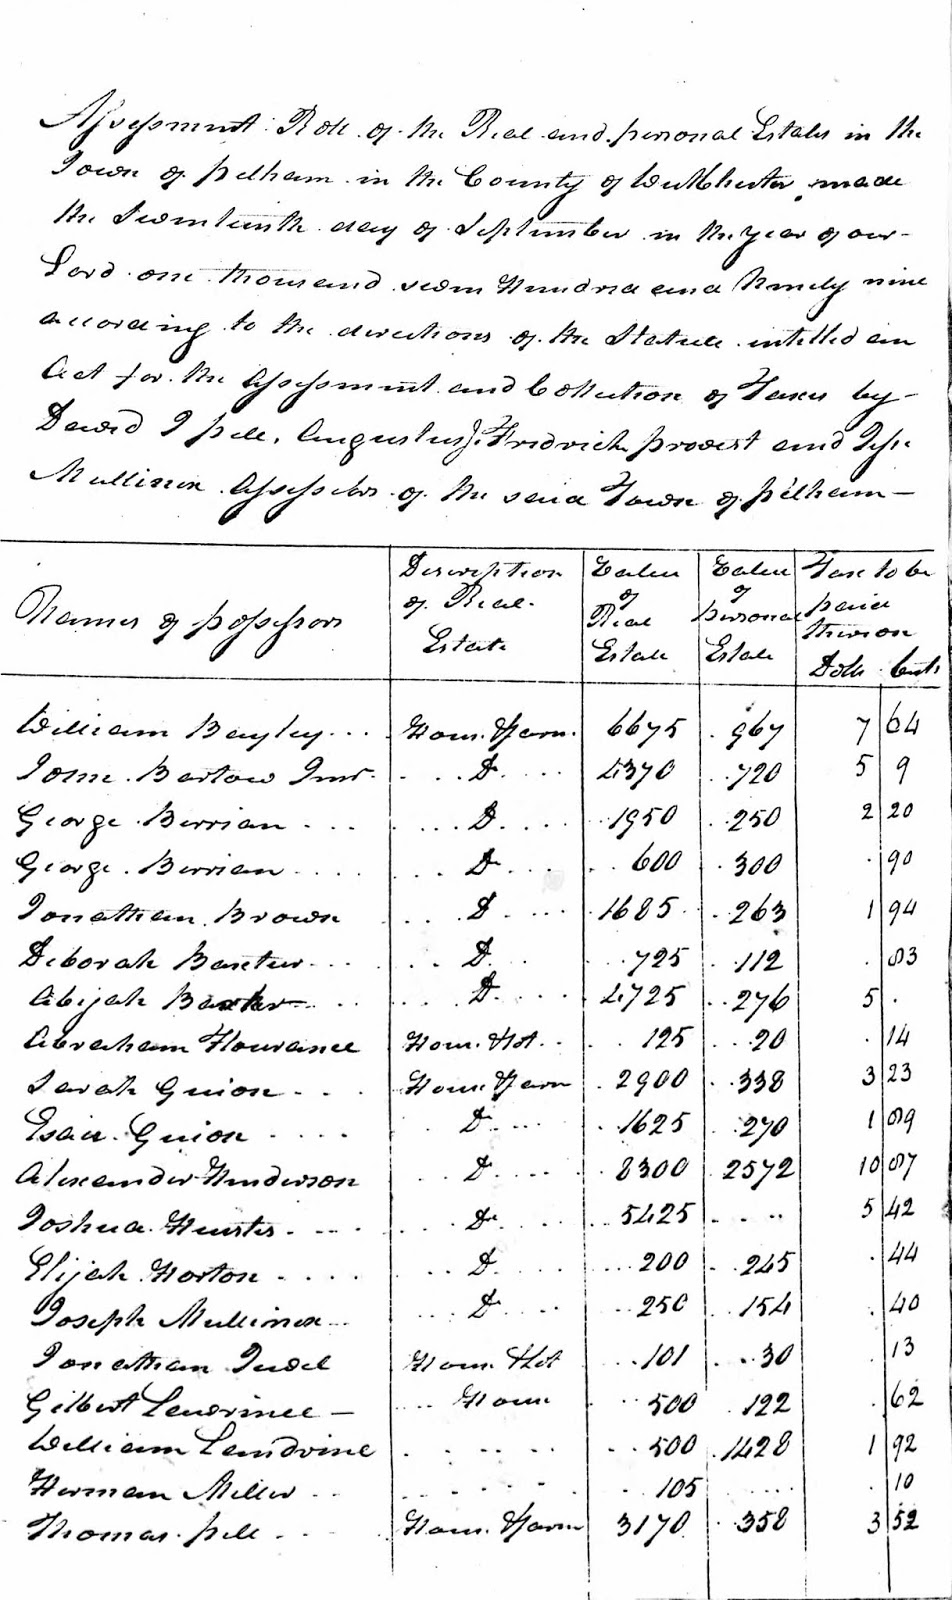 Assessment Role of the Real and personal Estates in the
Town of pelham in the County of WestChester made
the Seventeenth day of September in the year of our
Lord one thousand seven Hundred and Ninety nine
according to the directions of the Statute intitled an
Act for the Assessment and Collection of Taxes by
David I pell, Augustus J. Fridrich provost and
Mullinex Assessors of the said Town of pelham
Names of possessors Description of Real Estate Value of Real Estate Value of personal Estate Tax to be paid thereon
Dolls Cents
William Bayley Hous. Farm. 6675 967 7 64
Bartow Junr. D 4370 720 5 9
George Berrian D 1950 250 2 20
George Berrian D 600 300 90
Jonathan Brown D 1685 263 1 94
Deborah Baxter D 725 112 83
Abijah Baxter D 4725 276 5
Abraham Hous. Lot 125 20 14
Sarah Guion Hous. Farm 2900 338 3 23
Guion D 1625 270 1 89
Alexander Henderson D 8300 2572 10 87
Joshua Hunter D 5425 5 42
Elijah Horton D 200 245 44
Joseph Mullinex D 250 154 40
Jonathan Hous. Lot 101 30 13
Gilbert Hous 500 122 62
William Landrine 500 1428 1 92
Herman Miller 105 10
Thomas pell Hous. Farm 3170 358 3 52